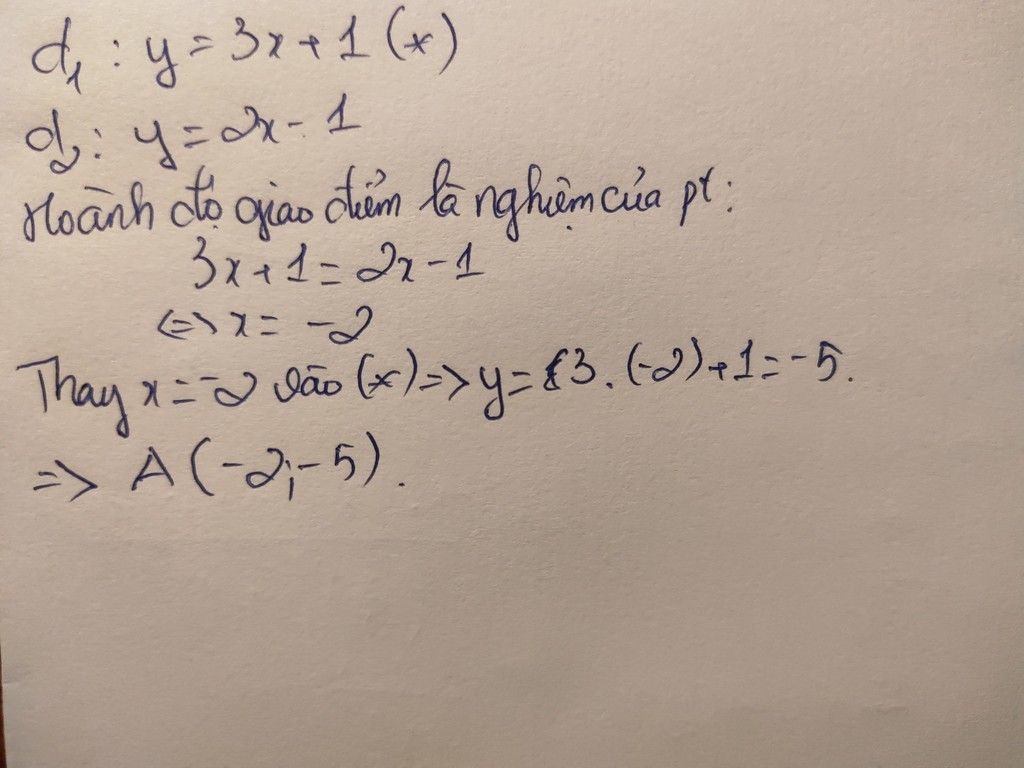 d₁ : y = 3x + 1 (*)
d₂ : y = 2x - 1
Hoành độ giao điểm là nghiệm của pt :
3x + 1 = 2x - 1
<=> x = -2
Thay x = -2 vào (*) => y = 3 . (-2) + 1 = -5 .
=> A (-2 ; -5) .